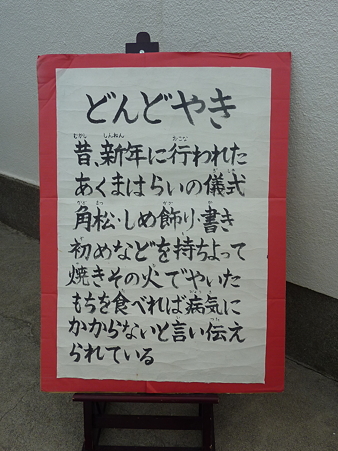 どんどやき
昔、新年に行われた
あくまはらいの儀式
角松・しめ飾り・書き
初めなどを持ちよって
焼きその火でやいた
もちを食べれば病気に
かからないと言い伝え
られている